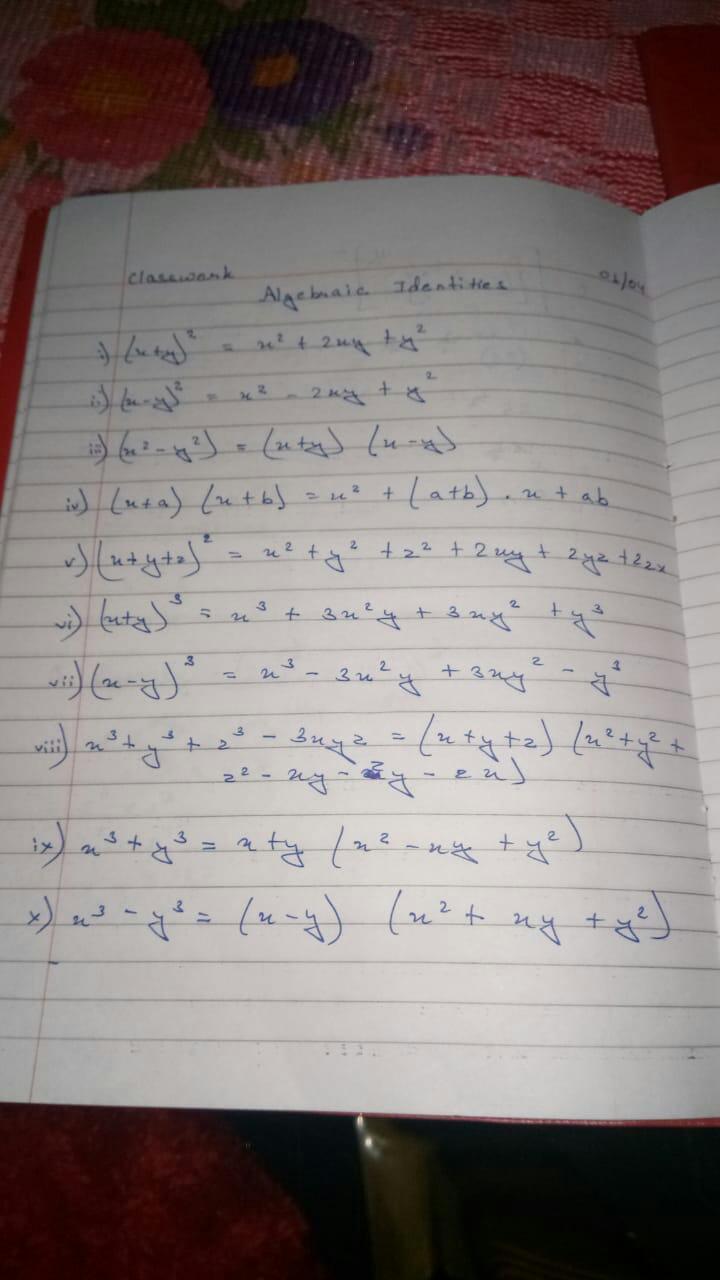 Classwork 01/04
Algebraic Identities
i) (x+y)² = x² + 2xy + y²
ii) (x-y)² = x² - 2xy + y²
iii) (x² - y²) = (x+y) (x-y)
iv) (x+a) (x+b) = x² + (a+b) . x + ab
v) (x+y+z)² = x² + y² + z² + 2xy + 2yz + 2zx
vi) (x+y)³ = x³ + 3x²y + 3xy² + y³
vii) (x-y)³ = x³ - 3x²y + 3xy² - y³
viii) x³ + y³ + z³ - 3xyz = (x+y+z) (x²+y²+
z² - xy - zy - zx)
ix) x³ + y³ = x+y (x² - xy + y²)
x) x³ - y³ = (x-y) (x² + xy + y²)